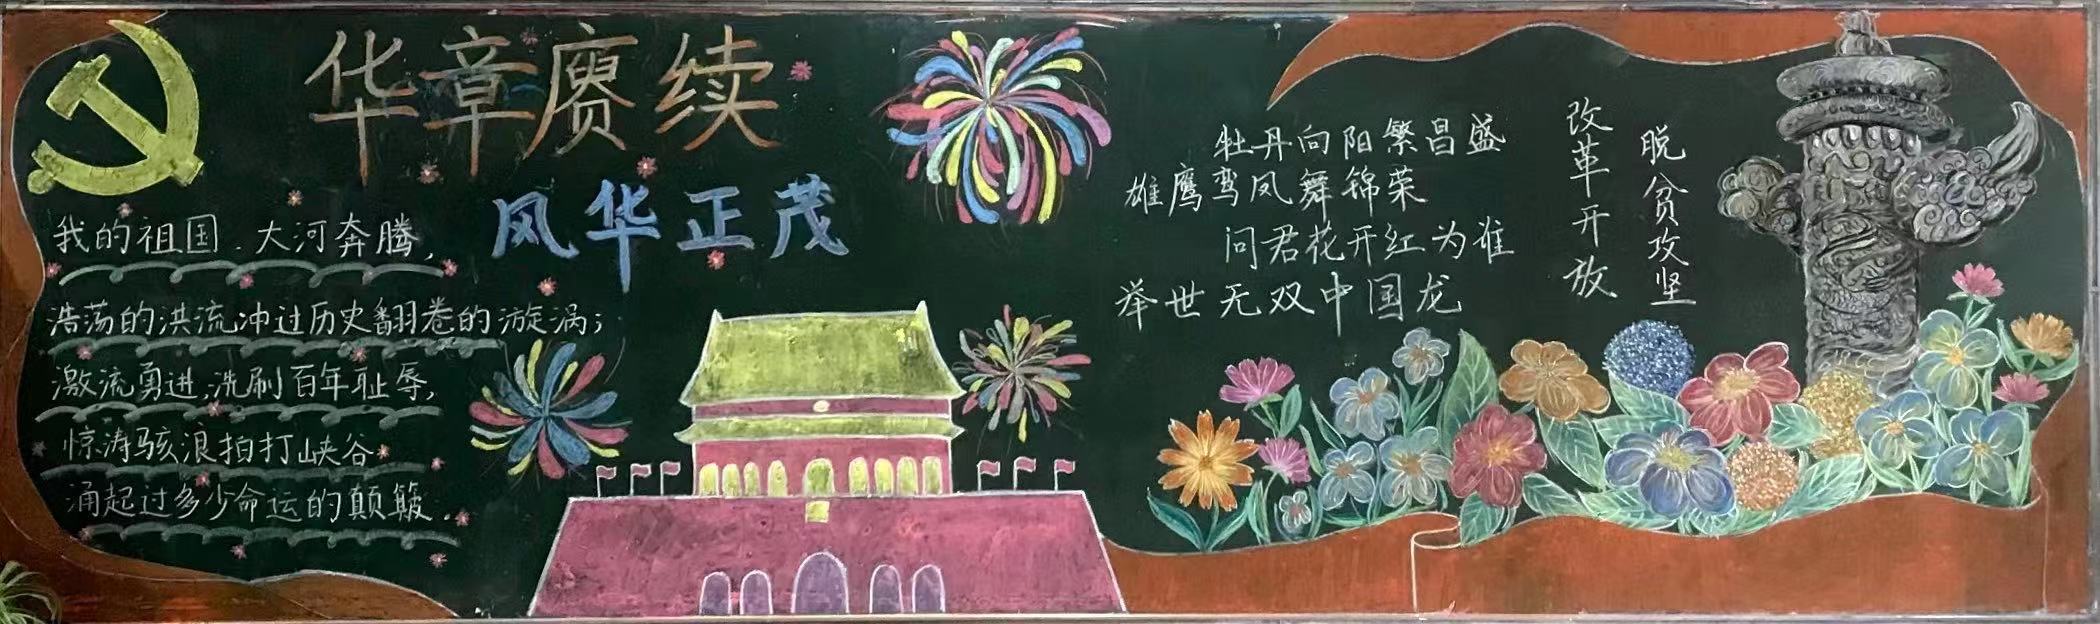 华章赓续
风华正茂
我的祖国．大河奔腾，
浩荡的洪流冲过历史翻卷的漩涡；
激流勇进，洗刷百年耻辱，
惊涛骇浪拍打峡谷
涌起过多少命运的颠簸．
牡丹向阳繁昌盛
雄鹰鸾凤舞锦荣
问君花开红为谁
举世无双中国龙
改革开放
脱贫攻坚